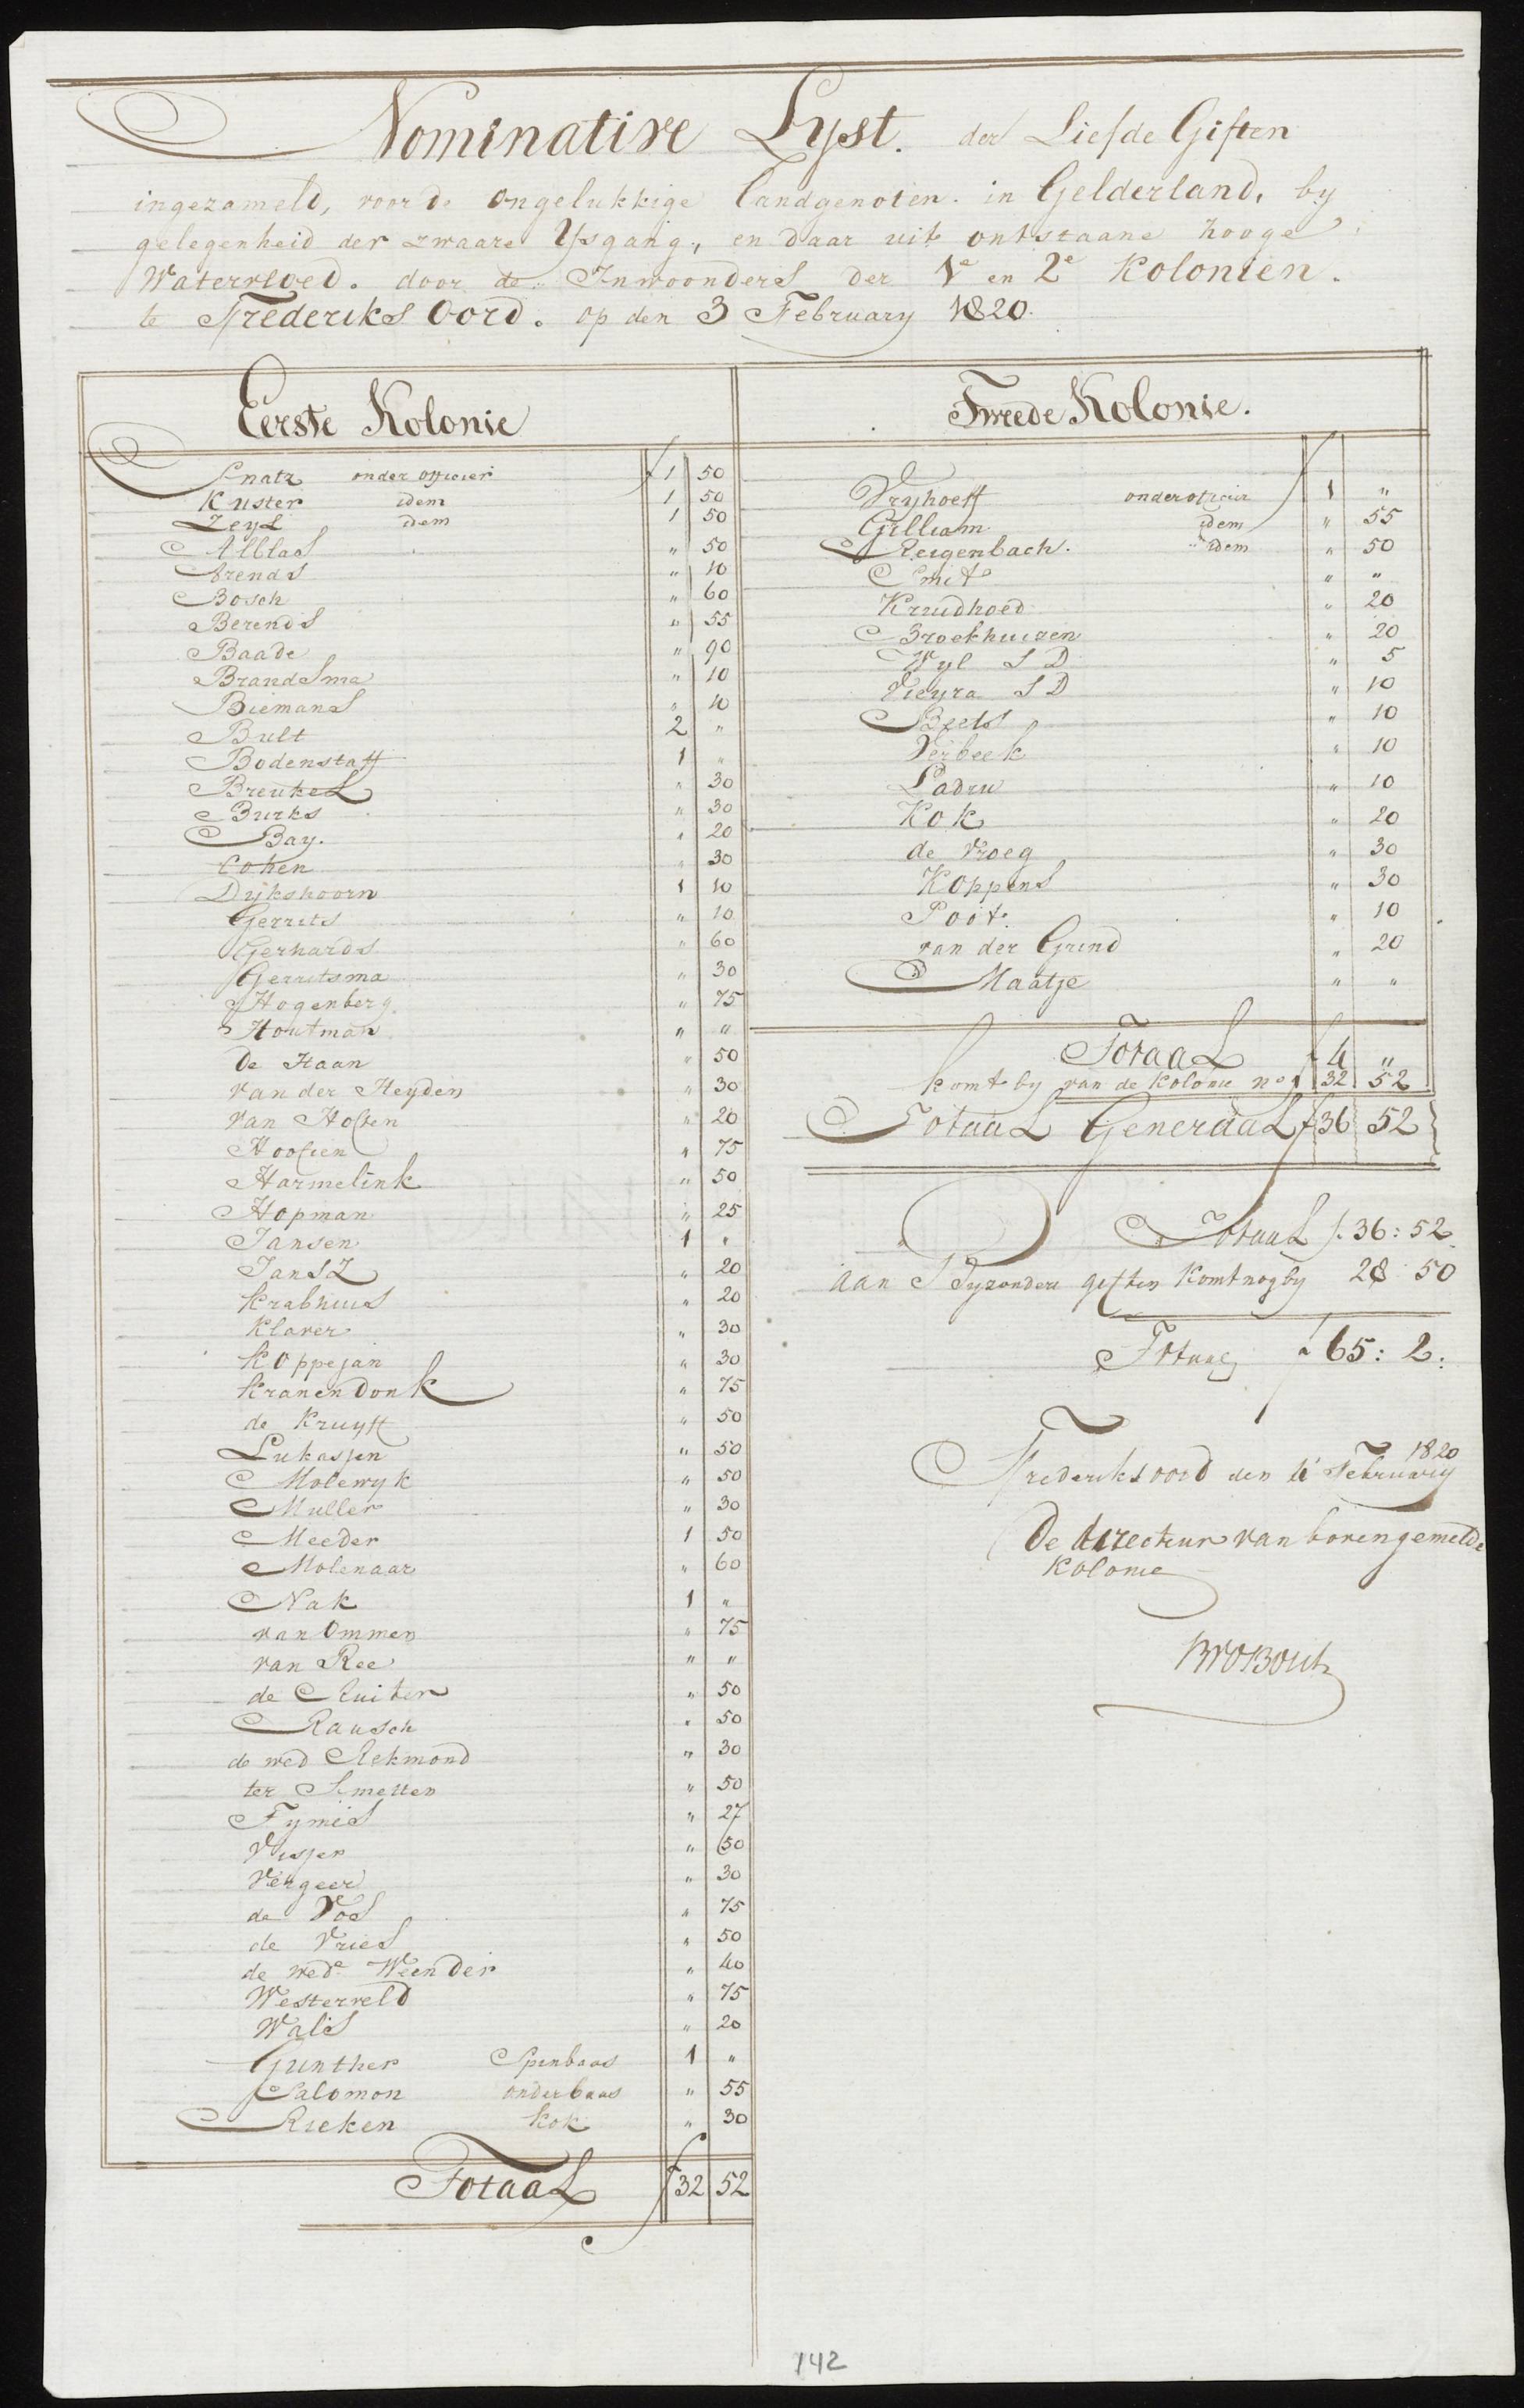 Nominative Lyst. der Liefde Giften
ingezameld, voor de ongelukkige landgenoten. in Gelderland, by
gelegenheid der zwaare Ysgang, en daar uit ontstaane hooge
Watervloed. door de Inwoonders der 1e en 2e Kolonien.
te Frederiks Oord. op den 3 February 1820.
Eerste Kolonie
Snatz onder officier f 1 50
Kuster idem 1 50
Zeyl idem 1 50
Alblas " 50
Arends " 10
Bosch " 60
Berends " 55
Baade " 90
Brandsma " 10
Biemans " 10
Bult 2 "
Bodenstaff 1 "
Breukel " 30
Burks " 30
Bay. " 20
Cohen " 30
Dijkshoorn 1 10
Gerrits " 10
Gerhards " 60
Gerritsma " 30
Hogenberg " 75
Houtman " "
de Haan " 50
van der Heyden " 30
van Holten " 20
Hoofien " 75
Harmelink " 50
Hopman " 25
Jansen 1 "
JansZ " 20
Krabhuis " 20
Klaver " 30
Koppejan " 30
Kranendonk " 75
de Kruyff " 50
Lukassen " 50
Molewyk " 50
Muller " 30
Meeder 1 50
Molenaar " 60
Nak 1 "
van Ommen " 75
van Ree " "
de Ruiter " 50
Rausch " 50
de wed Rekmond " 30
ter Smetten " 50
Tymes " 27
Visser " 50
Vergeer " 30
de Vos " 75
de Vries " 50
de wede Weender " 40
Westerveld " 75
Wals " 20
Gunther Spinbaas 1 "
Salomon onderbaas " 55
Rieken kok " 30
Totaal f 32 52
Tweede Kolonie.
Vryhoeff onderofficier f 1 "
Gilliam idem " 55
Reigenbach. idem " 50
Smit " "
Kruidhoed " 20
Broekhuizen " 20
Wyl S D " 5
Vieyra S D " 10
Beets " 10
Verbeek " 10
Ladru " 10
Kok " 20
de Vroeg " 30
Koppens " 30
Poot " 10
van der Grind " 20
Maatje " "
Totaal f 4 "
komt by van de Kolonie no 1 32 52
Totaal Generaal f 36 52
Totaal f. 36: 52
aan Byzondere giften komt nog by 28 50
Totaal f 65: 2:
Frederiksoord den 4 February 1820
De directeur van bovengemelde
Kolonie
142